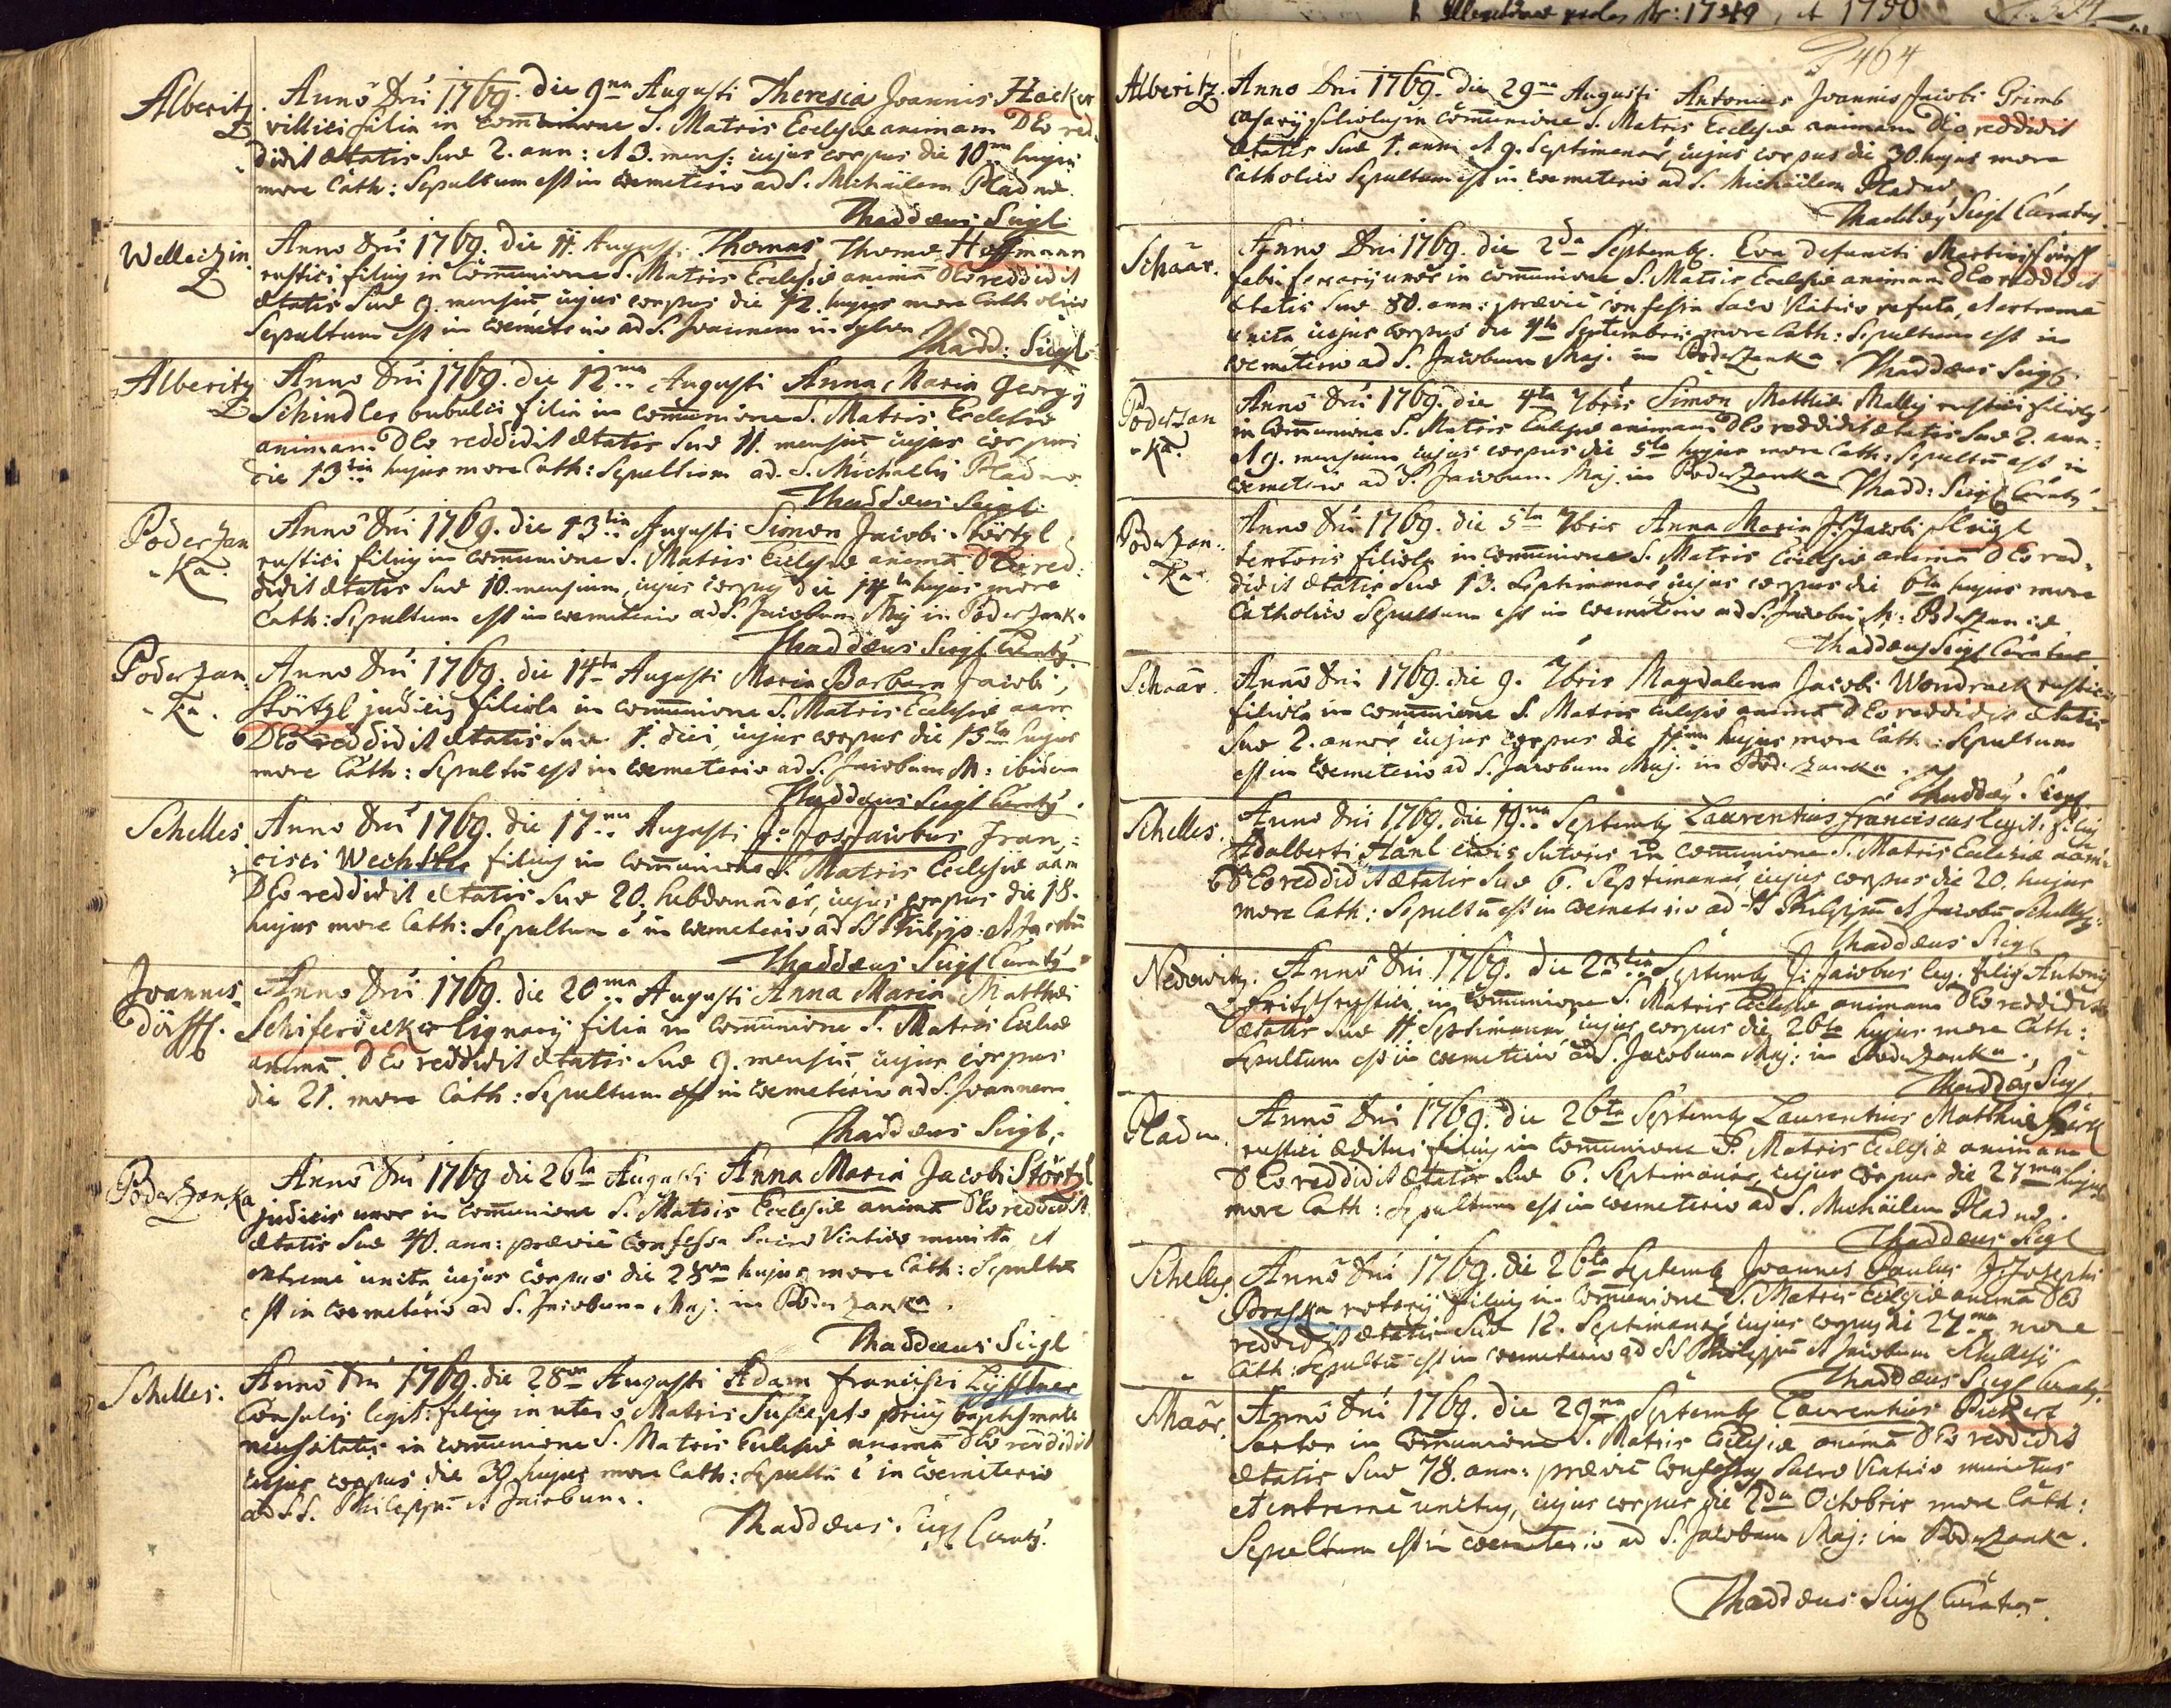 Alberitz. Anno Dni 1769. die 9na Augusti Theresia Joannis Hacker
villici filia in communione S. Matris Ecclesiæ animam DEo red-
didit ætatis suæ 2. ann: et 3. mens: cujus corpus die 10ma hujus
more Cath: Sepultum est in cœmeterio ad S. Michäelem Pladnæ.
Thaddæus Siegl
Welletzin Anno Dni 1769. die 11. Augusti. Thomas Thomæ Hoffmann
rustici filius in Communione S. Matris Ecclesiæ animã DEo reddidit
ætatis suæ 9. mensiũ, cujus corpus die 12. hujus more Catholico
Sepultum est in cœmeterio ad S. Joannem in Sylva
Thadd: Siegl
Alberitz Anno Dni 1769. die 12ma Augusti Anna Maria Georgij
Schindler bubulci filia in communione S. Matris Ecclesiæ
animam DEo reddidit ætatis suæ 11. mensiũ cujus corpus
die 13tia hujus more Cath: Sepultum ad S. Michaelis Pladnæ
Thaddæus Siegl
Poderzan-ka. Anno Dni 1769. die 13tia Augusti Simon Jacobi Störtzl
rustici filius in communione S. Matris Ecclesiæ animã DEo red-
didit ætatis suæ 10. mensium, cujus corpus die 14ta hujus more
Cath: Sepultum est in cœmeterio ad S. Jacobum Maj in Poderzanka
Thaddæus Siegl Curatus
Poderzan-ka. Anno Dni 1769. die 14ta Augusti Maria Barbara Jacobi
Störtzl judicis filiola in communione S. Matris Ecclesiæ aãm
DEo reddidit ætatis suæ 1. diei, cujus corpus die 15ta hujus
more Cath: Sepultũ est in cœmeterio ad S. Jacobum M: ibidem
Thaddæus Siegl Curatus
Schelles. Anno Dni 1769. die 17ma Augusti Jacobus Fran-
cisci Wechstler filius in communione S. Matris Ecclesiæ aãm
DEo reddidit ætatis suæ 20. hebdomadar, cujus corpus die 18.
hujus more Cath: Sepultum ẽ in cœmeterio ad SS Philipp: et Jacobũ
Thaddæus Siegl Curatus
Joannis-dörff. Anno Dni 1769. die 20ma Augusti Anna Maria Matthæi
Schiferdecker lignarij filia in communione S. Matris Eccliæ
animã DEo reddidit ætatis suæ 9. mensiũ, cujus corpus
die 21. more Cath: Sepultum est in cœmeterio ad S. Joannem
Thaddæus Siegl
Poderzanka Anno Dni 1769 die 26ta Augusti Anna Maria Jacobi Störtzl
judicis uxor in communione S. Matris Ecclesiæ animã DEo reddidit
ætatis suæ 40. ann: præviè Confessa Sacro Viatico munita et
extreme uncta cujus corpus die 28va hujus more Cath: Sepultũ
est in cœmeterio ad S. Jacobum Maj. in Poderzanka.
Thaddæus Siegl
Schelles. Anno Dni 1769. die 28va Augusti Adam Francisci
Consulis legit: filius in utero Matris Suscepto prius baptismate
necessitatis in communione S. Matris Ecclesiæ animã DEo reddidit
cujus corpus die 30 hujus more Cath: Sepultũ ẽ in cœmeterio
ad SS. Philippũ et Jacobum.
Thaddæus Siegl Curatus.
1749 et 1750
464
Alberitz. Anno Dni 1769. die 29na Augusti Antonius Joannis Jacobi Grimb
casarij filiolus in communione S. Matris Ecclesiæ animam DEo reddidit
ætatis suæ 1. anni et 9. Septimanar, cujus corpus die 30. hujus more
Catholico Sepultum est in cœmeterio ad S. Michäelem Pladnæ.
Thaddæus Siegl Curatus.
Schaar. Anno Dni 1769. die 2da Septemb. Eva defuncti Martini
fabri ferrarij uxor in communione S. Matris Ecclesiæ animam DEo reddidit
ætatis suæ 80. ann: præviè confessa Sacro Viatico refecta, et extremè
uncta cujus corpus die 4ta Septembris more Cath: Sepultum est in
cœmeterio ad S. Jacobum Maj. in Poderzanka. Thaddæus Siegl.
Poderzan-ka. Anno Dni 1769. die 4ta 7bris Simon Mathiæ Mally rustici filiolus
in Communione S. Matris Ecclesiæ animam DEo reddidit ætatis suæ 2. ann:
et 9. mensium cujus corpus die 5ta hujus more Cath: Sepultũ est in
cœmeterio ad S. Jacobum Maj. in Poderzanka Thadd: Siegl Curatus
Poderzan-ka. Anno Dni 1769. die 5ta 7bris Anna Maria Jacobi
textoris filiola in communione S. Matris Ecclesiæ animã DEo red-
didit ætatis suæ 13. Septimanar cujus corpus die 6ta hujus more
Catholico Sepultum est in cœmeterio ad S. Jacobũ M: Poderzancæ
Thaddæus Siegl Curatus
Schaar. Anno Dni 1769. die 9. 7bris Magdalena Jacobi Wondrack rustici
filiola in communione S. Matris Ecclesiæ animã DEo reddidit ætatis
suæ 2. annor cujus corpus die 11ma hujus more Cath: Sepultum
est in cœmeterio ad S. Jacobum Maj. in Poderzanka.
Thaddæus Siegl
Schelles. Anno Dni 1769. die 19na Septemb Laurentius Franciscus legit: filius
Adalberti Hanl civis Sutoris in communione S. Matris Ecclesiæ aãm
DEo reddidit ætatis suæ 6. Septimanar, cujus corpus die 20. hujus
more Cath: Sepultũ est in cœmeterio ad SS Philippũ et Jacobũ
Thaddæus Siegl
Nedowitz. Anno Dni 1769. die 25ta Septemb Jacobus leg. filius Antonij
Fritsch rustici in communione S. Matris Ecclesiæ animam DEo reddidit
ætatis suæ 11 Septimanar cujus corpus die 26ta hujus more Cath:
Sepultum est in cœmeterio ad S. Jacobum Maj: in Poderzanka.
Thaddæus Siegl.
Pladn. Anno Dni 1769. die 26ta Septemb Laurentius Matthiæ
rustici æditui filius in communione S. Matris Ecclesiæ animam
DEo reddidit ætatis suæ 6. Septimanar, cujus corpus die 27ma hujus
more Cath: Sepultum est in cœmeterio ad S. Michäelem Pladnæ.
Thaddæus Siegl
Schelles. Anno Dni 1769. die 26ta Septemb Joannes Paulus Josephi
filius in Communione S. Matris Ecclesiæ animã DEo
reddidit ætatis suæ 12. Septimanar cujus corpus die 27ma more
Cath: Sepultũ est in cœmeterio ad SS Philippũ et Jacobum Schellesij
Thaddæus Siegl Curatus.
Schaar. Anno Dni 1769. die 29na Septemb Laurentius Pickert
Sartor in Communione S. Matris Ecclesiæ animã DEo reddidit
ætatis suæ 78. ann: præviè Confessus Sacro Viatico munitus
et extremè unctus, cujus corpus die 2da Octobris more Cath:
Sepultum est in cœmeterio ad S. Jacobum Maj: in Poderzanka.
Thaddæus Siegl Curatus.